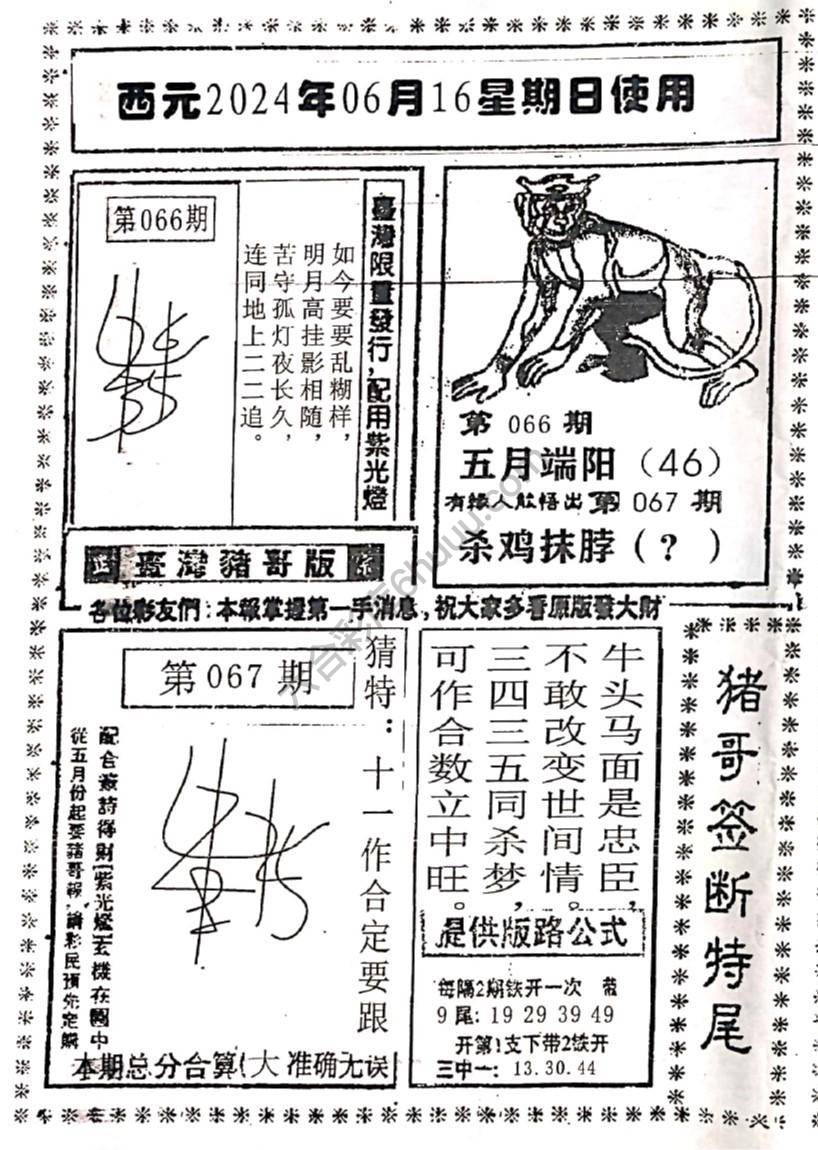 西元2024年06月16星期日使用
第066期
如今要要乱糊样，
明月高挂影相随，
苦守孤灯夜长久，
连同地上二二追。
臺灣限量發行，配用紫光燈
第 066 期
五月端阳（46）
有緣人能悟出 第 067 期
杀鸡抹脖（？）
臺灣豬哥版
各位彩友們：本報掌握第一手消息，祝大家多看原版發大財
第067期
猜特：十一作合定要跟
配合籤詩得財（紫光燈）玄機在圖中
從五月份起要豬哥報，請彩民預先定購
本期总分合算（大 准确无误
牛头马面是忠臣，
不敢改变世间情。
三四三五同杀梦，
可作合数立中旺。
提供版路公式
每隔2期铁开一次 带
9尾：19 29 39 49
开第1支下带2铁开
三中一：13.30.44
猪哥签断特尾
六合彩库6huuu.com